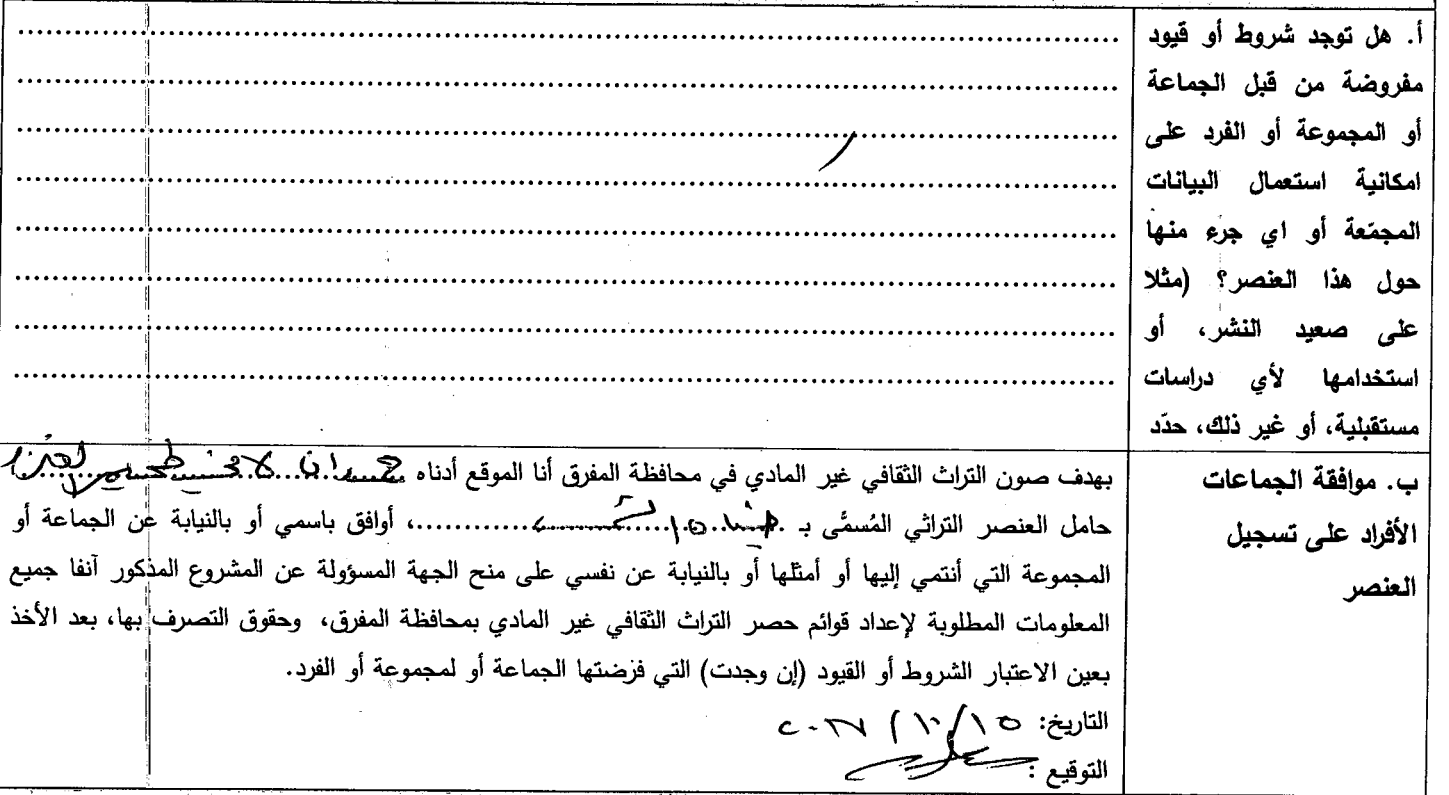 أ. هل توجد شروط أو قيود
مفروضة من قبل الجماعة
أو المجموعة أو الفرد على
امكانية استعمال البيانات
المجمّعة أو اي جزء منها
حول هذا العنصر؟ (مثلا
على صعيد النشر، أو
استخدامها لأي دراسات
مستقبلية، أو غير ذلك، حدّد
ب. موافقة الجماعات
الأفراد على تسجيل
العنصر
بهدف صون التراث الثقافي غير المادي في محافظة المفرق أنا الموقع أدناه
حامل العنصر التراثي المُسمَّى بـ ..............، أوافق باسمي أو بالنيابة عن الجماعة أو
المجموعة التي أنتمي إليها أو أمثلها أو بالنيابة عن نفسي على منح الجهة المسؤولة عن المشروع المذكور آنفا جميع
المعلومات المطلوبة لإعداد قوائم حصر التراث الثقافي غير المادي بمحافظة المفرق، وحقوق التصرف بها، بعد الأخذ
بعين الاعتبار الشروط أو القيود (إن وجدت) التي فرضتها الجماعة أو لمجموعة أو الفرد.
التاريخ: ١٥/١٠/
التوقيع :